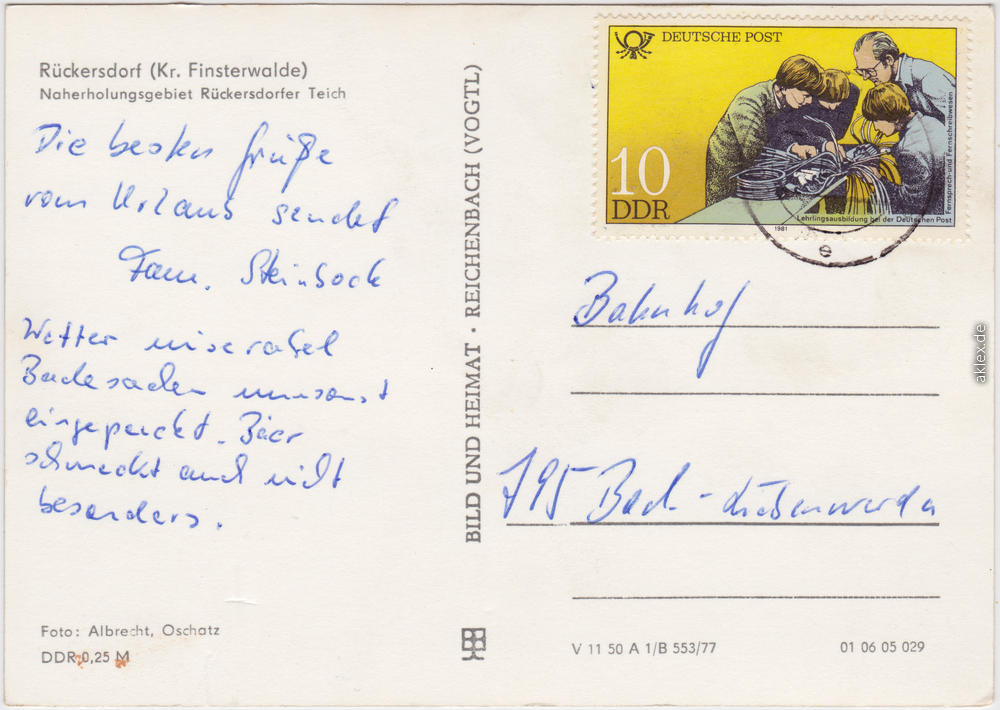 Rückersdorf (Kr. Finsterwalde)
Naherholungsgebiet Rückersdorfer Teich
Die besten Grüße
vom Urlaub sendet
Fam. Steinbock
Wetter miserabel
Badesachen umsonst
eingepackt. Bier
schmeckt auch nicht
besonders.
Foto: Albrecht, Oschatz
DDR 0,25 M
BILD UND HEIMAT · REICHENBACH (VOGTL)
DEUTSCHE POST
10
DDR
Fernsprech- und Fernschreibwesen
Lehrlingsausbildung bei der Deutschen Post
1981
e
Bahnhof
795 Bad-Liebenwerda
V 11 50 A 1/B 553/77
01 06 05 029
aklex.de